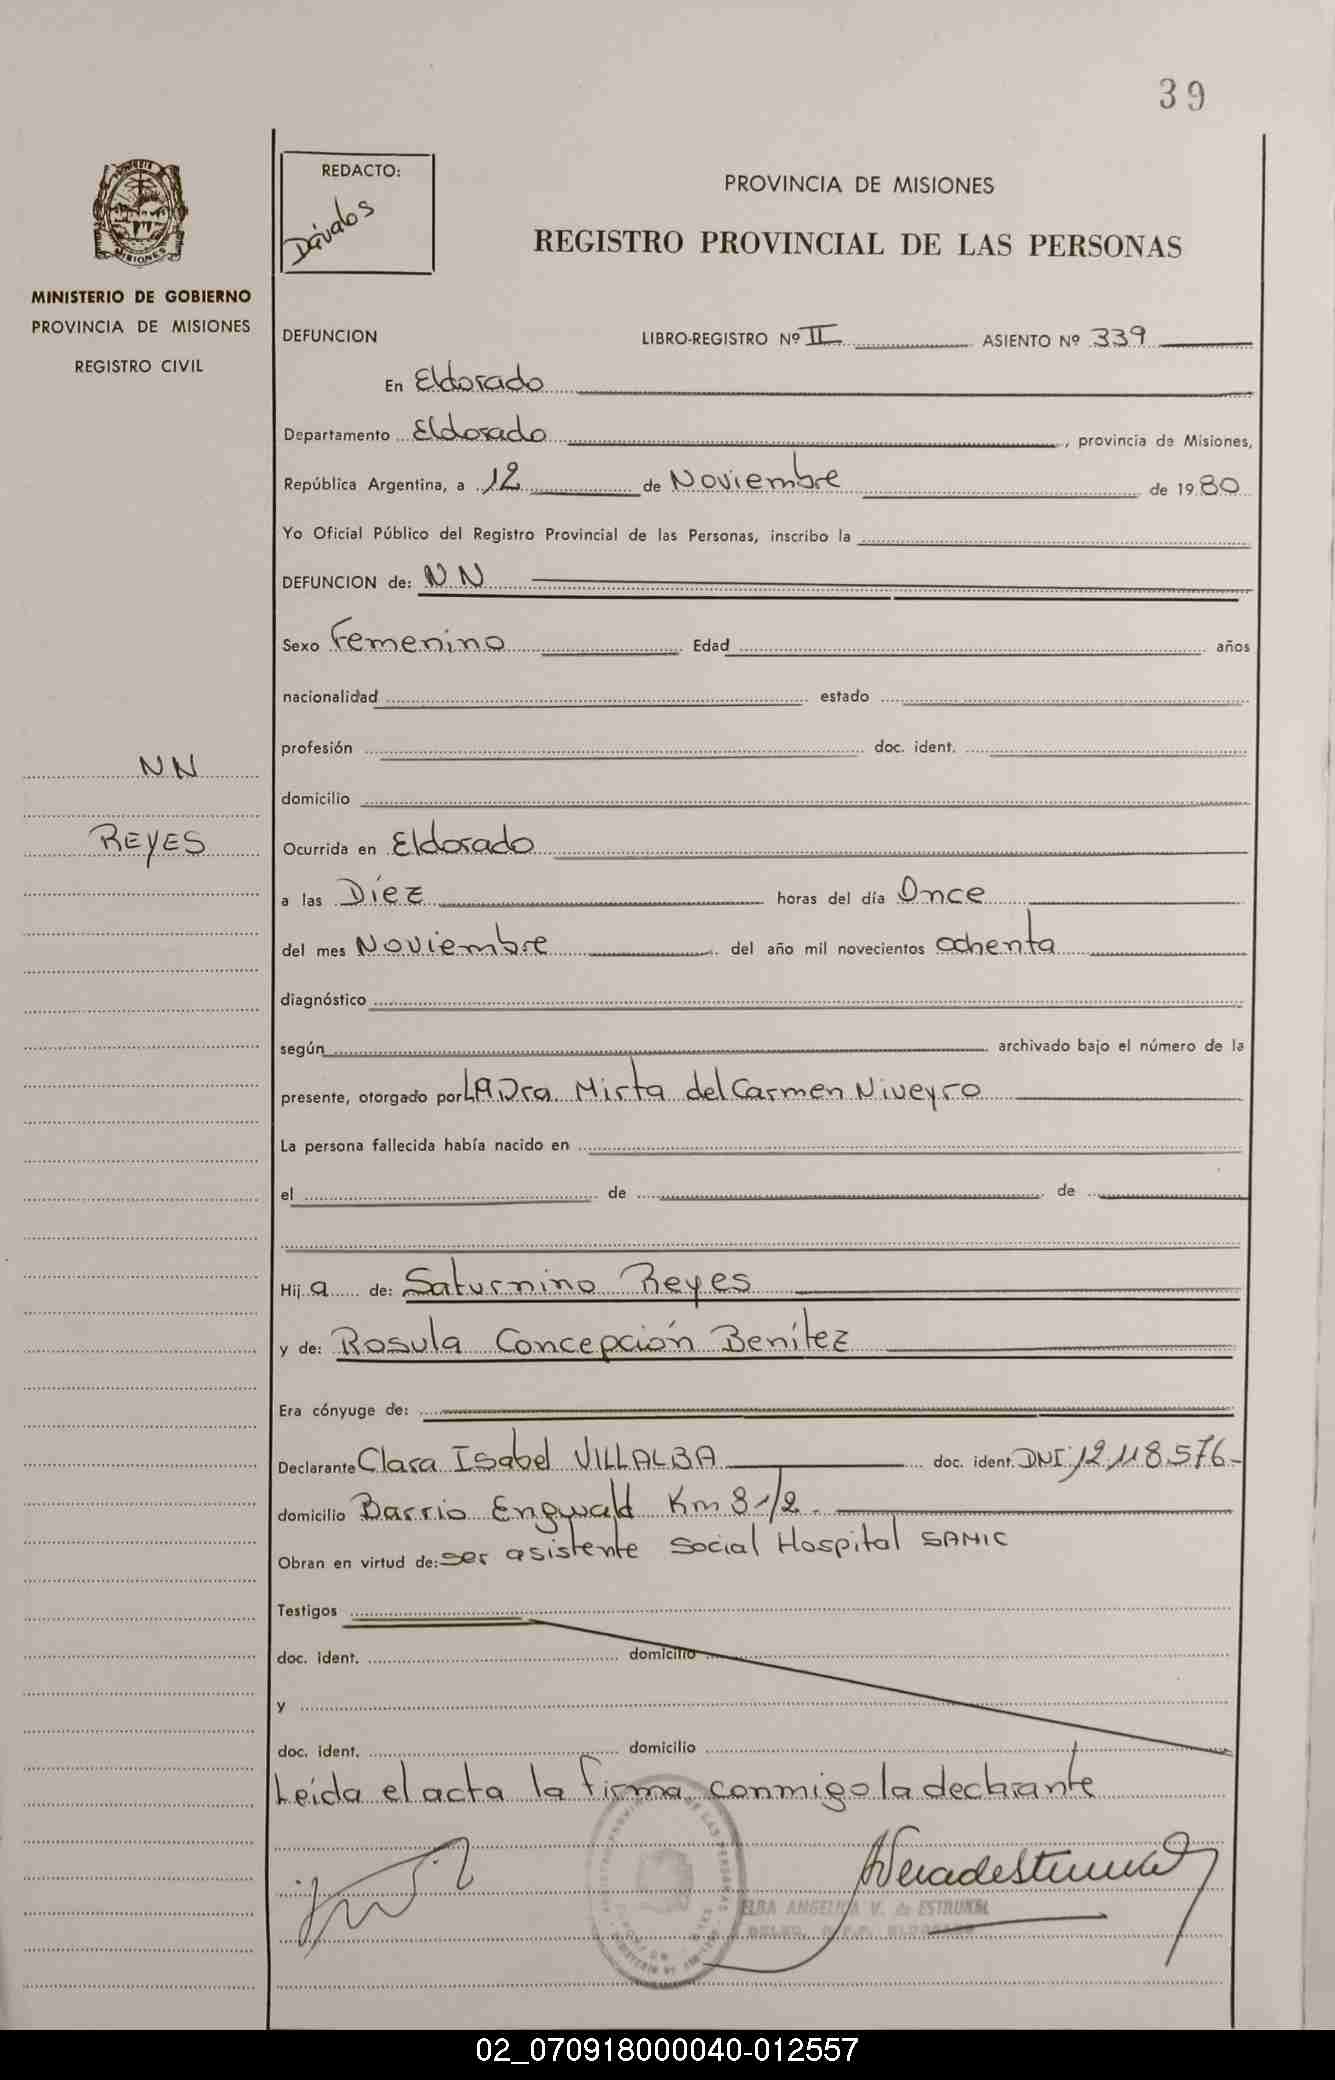 39
REDACTO:
Dávalos
PROVINCIA DE MISIONES
REGISTRO PROVINCIAL DE LAS PERSONAS
MINISTERIO DE GOBIERNO
PROVINCIA DE MISIONES
REGISTRO CIVIL
DEFUNCION LIBRO-REGISTRO Nº II ASIENTO Nº 339
En Eldorado
Departamento Eldorado, provincia de Misiones,
República Argentina, a 12 de Noviembre de 1980
Yo Oficial Público del Registro Provincial de las Personas, inscribo la
DEFUNCION de: NN
Sexo Femenino Edad años
nacionalidad estado
profesión doc. ident.
NN
domicilio
REYES
Ocurrida en Eldorado
a las Díez horas del día Once
del mes Noviembre del año mil novecientos ochenta
diagnóstico
según archivado bajo el número de la
presente, otorgado por LA Dra. Mirta del Carmen Niveyro
La persona fallecida había nacido en
el de de
Hija de: Saturnino Reyes
y de: Rosula Concepción Benítez
Era cónyuge de:
Declarante Clara Isabel VILLALBA doc. ident. DNI: 12.118.576-
domicilio Barrio Engwald Km 8 1/2.
Obran en virtud de: ser asistente Social Hospital SAMIC
Testigos
doc. ident. domicilio
y
doc. ident. domicilio
Leída el acta la firma conmigo la declarante
ELBA ANGELICA V. de
02_070918000040-012557